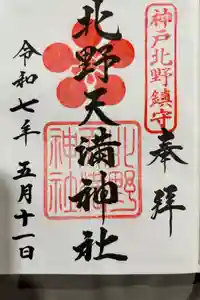 神戸北野鎮守
奉拝
北野天満神社
北野天満神社
令和七年五月十一日